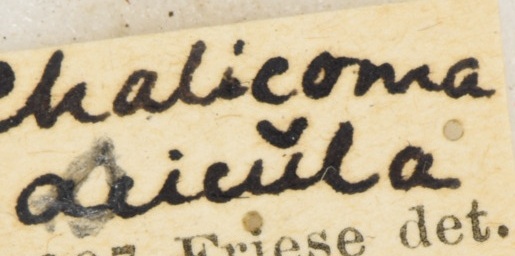 Chalicoma
acicŭla
Friese det.